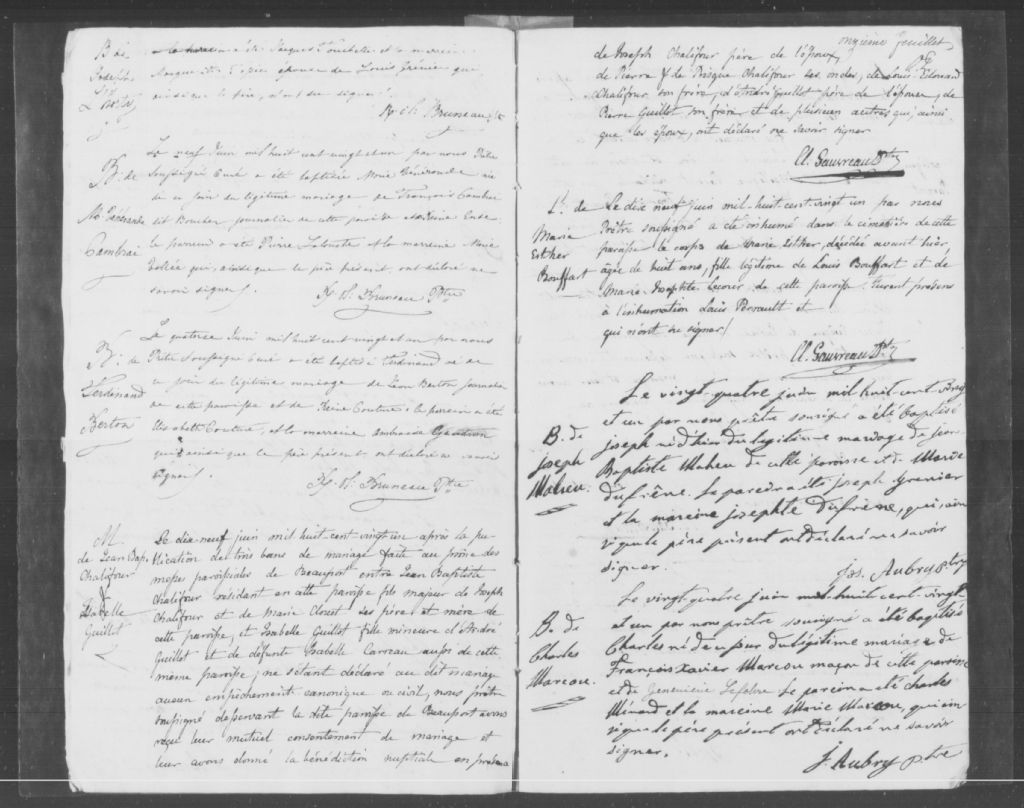 B de
Joseph
a été Jacques et la marreine
épouse de Louis Grénier que
ainsi que le père, n'ont su signer.
Bruneau Ptre
B. de
Mie Générande
Cambrai
Le neuf Juin mil huit cent vingt et un, par nous Prêtre
soussigné Curé a été baptisée Marie Générande née
de ce jour du légitime mariage de François Cambrai
dit Boucher journalier de cette paroisse et de Marie
le parrein a été Pierre et la marreine Marie
qui, ainsi que le père présent, ont déclaré ne
savoir signer.
Bruneau Ptre
B. de
Ferdinand
Berton
Le quatorze Juin mil huit cent vingt et un par nous
Prêtre Soussigné Curé a été baptisé Ferdinand né de
ce jour du légitime mariage de Jean Berton journalier
de cette paroisse et de Couture: le parrein a été
Couture, et la marreine
qui ainsi que le père présent ont déclaré ne savoir
signer.
Bruneau Ptre
M.
de Jean Bap.
Chalifour
&
Isabelle
Guillot
Le dix-neuf juin mil huit-cent vingt un après la pu-
blication de trois bans de mariage faite au prône des
messes paroissiales de Beauport entre Jean Baptiste
Chalifour résidant en cette paroisse fils majeur de Joseph
Chalifour et de Marie Clouet ses père et mère de
cette paroisse, et Isabelle Guillot fille mineure d'André
Guillot et de défunte Isabelle Carreau aussi de cette
même paroisse; ne s'étant déclaré au dit mariage
aucun empêchement canonique ou civil, nous prêtre
soussigné desservant la dite paroisse de Beauport avons
reçu leur mutuel consentement de mariage et
leur avons donné la bénédiction nuptiale en présence
onzième feuillet
de Joseph Chalifour père de l'époux,
de Pierre & de Prisque Chalifour ses oncles, de Louis Edouard
Chalifour son frère, d'André Guillot père de l'épouse, de
Pierre Guillot son frère et de plusieurs autres qui, ainsi
que les époux, ont déclaré ne savoir signer
Cl. Gauvreau Ptre
S. de
Marie
Esther
Bouffart
Le dix neuf juin mil-huit-cent vingt un par nous
Prêtre soussigné a été inhumé dans le cimetière de cette
paroisse le corps de Marie Esther, décédée avant hier,
âgée de huit ans, fille légitime de Louis Bouffart et de
Marie Josephte Lecour de cette paroisse. Furent présens
à l'inhumation Louis Perrault et
qui n'ont su signer/
Cl. Gauvreau Ptre
B. de
joseph
Maheu.
Le vingt-quatre juin mil huit cent vingt
et un par nous prêtre sousigné a été baptisé
joseph né d'hier du légitime mariage de jean
Baptiste Maheu de cette paroisse et de Marie
Dufrêne. Le parein a été joseph Grenier
et la mareine josephte Dufrêne, qui, ainsi
que le père présent ont déclaré ne savoir
signer.
Jos. Aubry ptre
B. de
Charles
Marcou.
Le vingt quatre juin mil huit cent vingt
et un par nous prêtre sousigné a été baptisé
Charles né de ce jour du légitime mariage de
François Xavier Marcou maçon de cette paroisse
et de Geneviève Lefebvre Le parein a été charles
Ménard et la mareine Marie Marcou, qui ain-
si que le père présent ont déclaré ne savoir
signer.
J. Aubry ptre